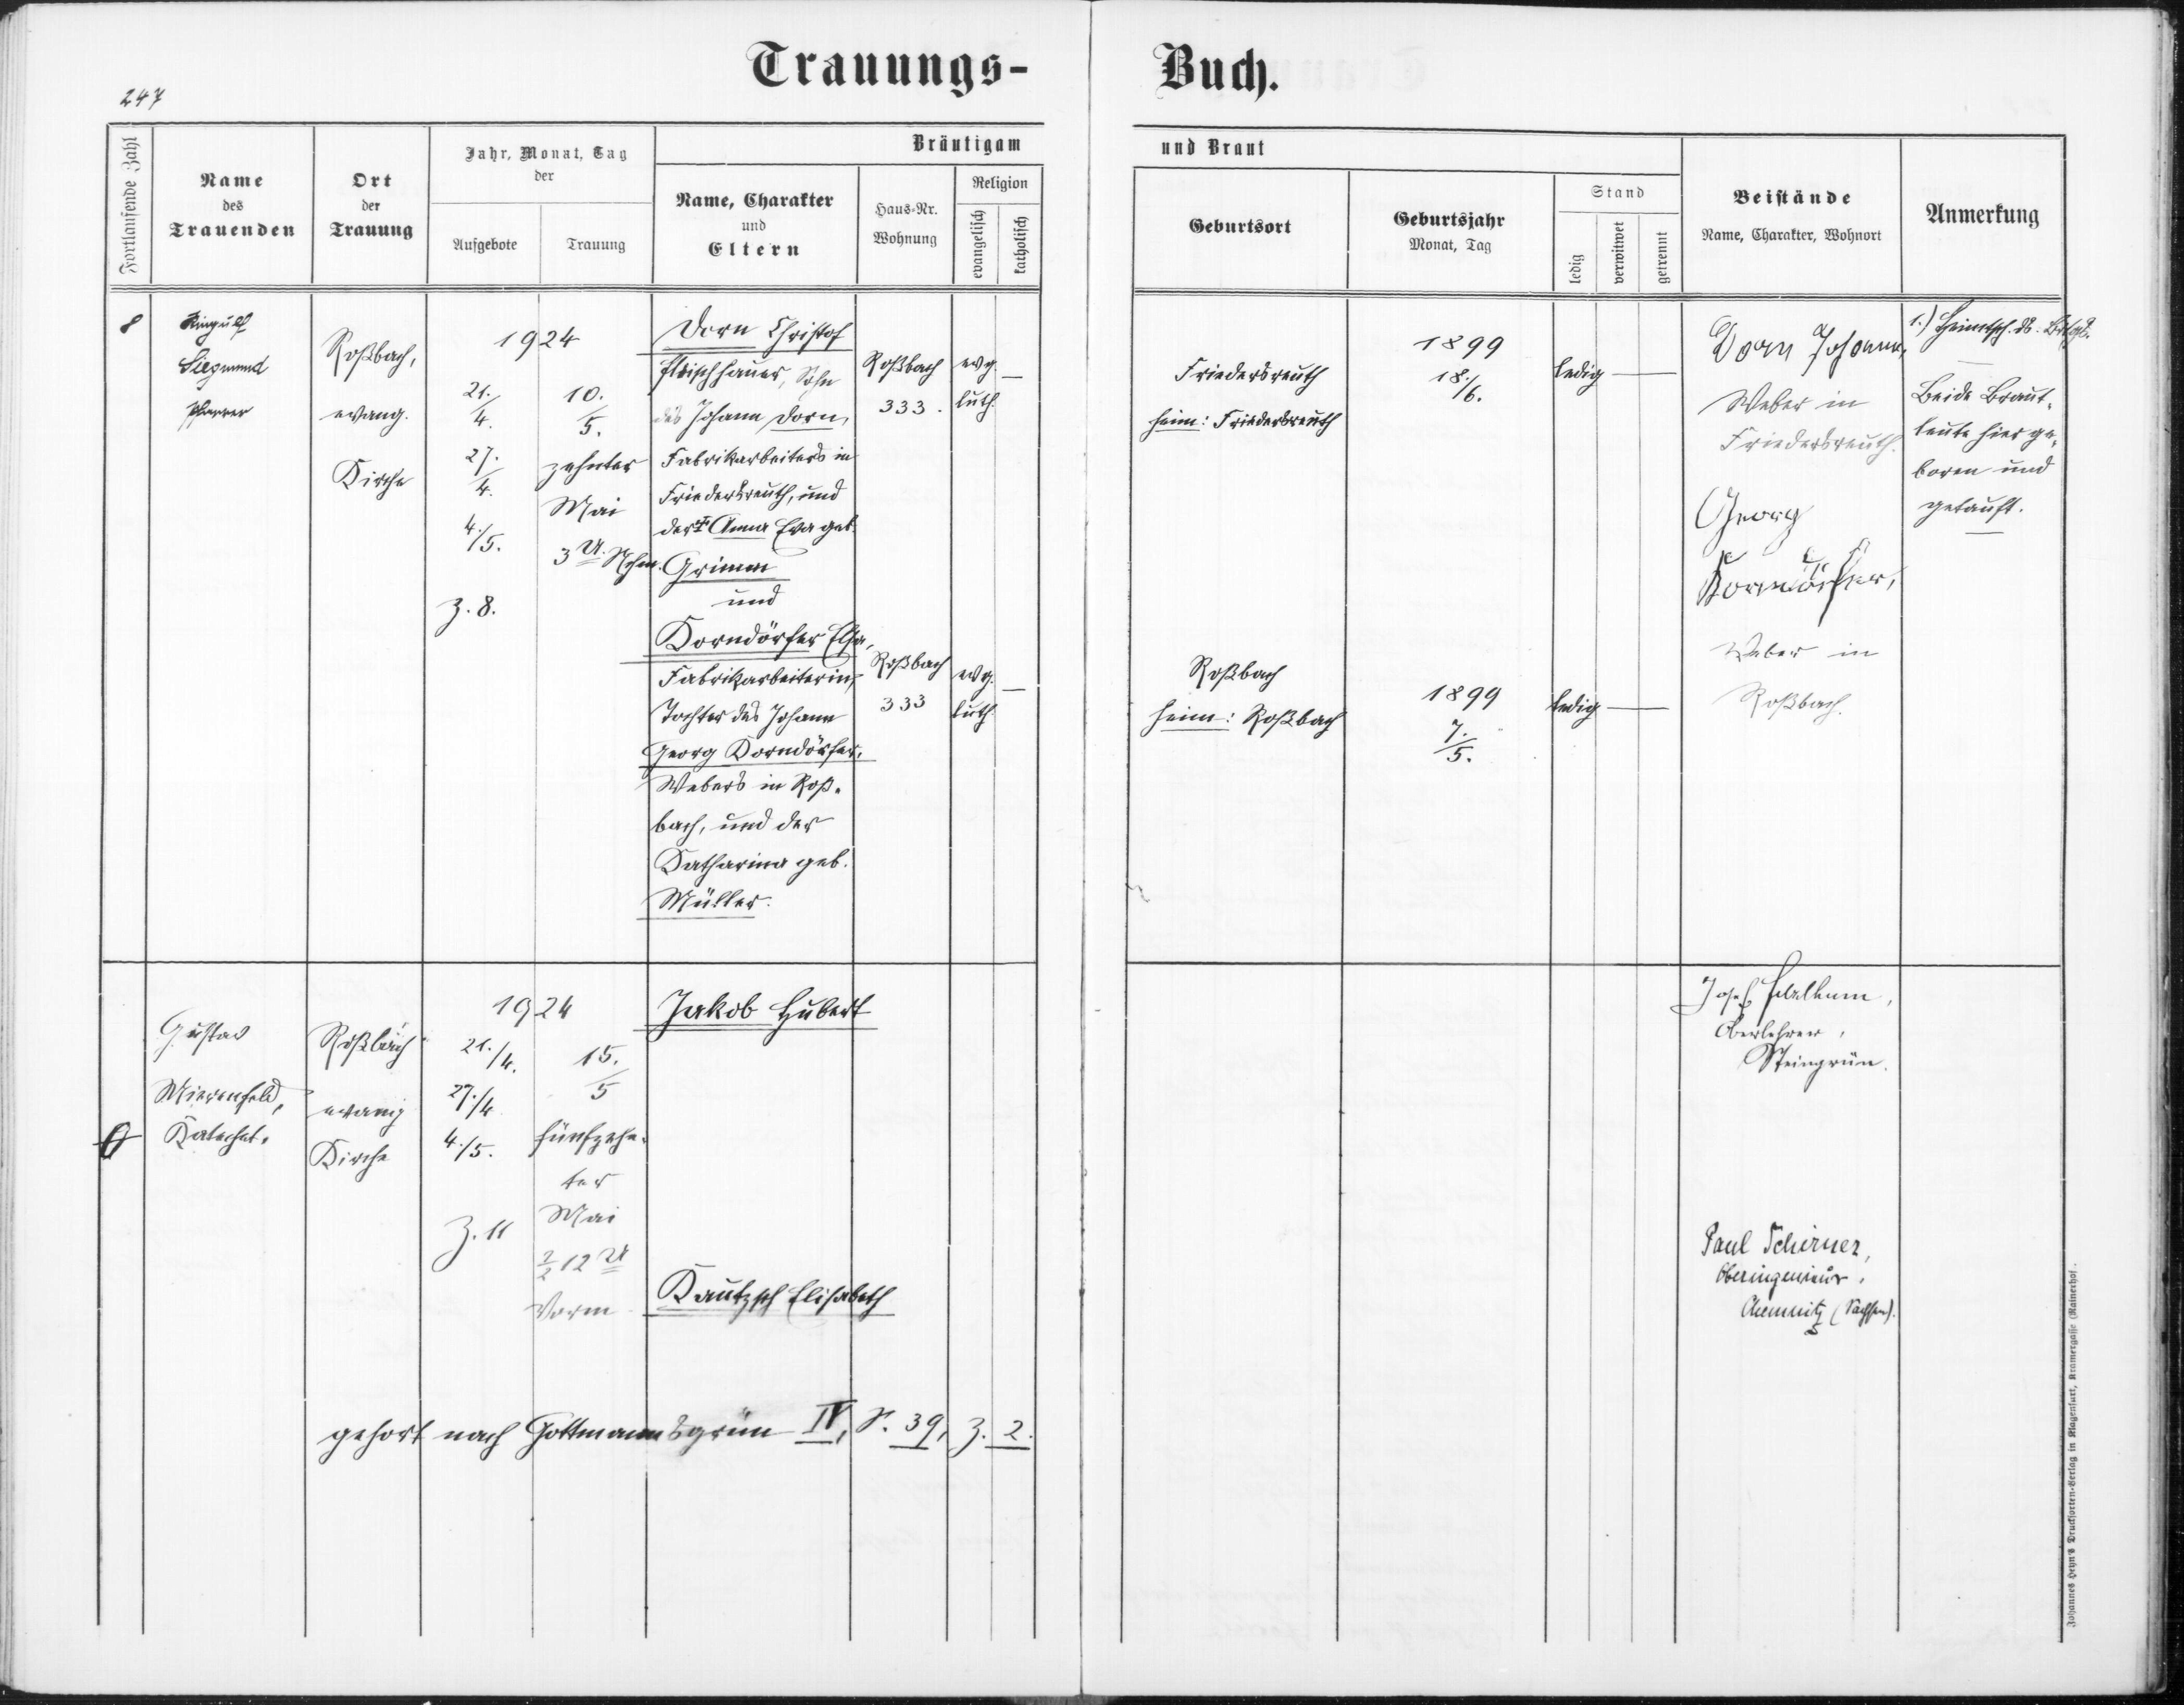 247
Trauungs-
Buch.
Fortlaufende Zahl
Name
des
Trauenden
Ort
der
Trauung
Jahr, Monat, Tag
der
Aufgebote
Trauung
Bräutigam
Name, Charakter
und
Eltern
Haus-Nr.
Wohnung
Religion
evangelisch
katholisch
und Braut
Geburtsort
Geburtsjahr
Monat, Tag
Stand
ledig
verwitwet
getrennt
Beistände
Name, Charakter, Wohnort
Anmerkung
8
Siegmund
Pfarrer
Roßbach,
evang.
Kirche
1924
21./4.
27./4.
4./5.
Z. 8.
10./5.
zehnter
Mai
3 U. Nchm.
Dorn Christof
Fleischhauer, Sohn
des Johann Dorn,
Fabrikarbeiters in
Friedersreuth, und
der † Anna Eva geb.
Grimm
und
Korndörfer Elsa,
Fabrikarbeiterin,
Tochter des Johann
Georg Korndörfer,
Webers in Roß-
bach, und der
Katharina geb.
Müller.
Roßbach
333.
evg.
luth.
Roßbach
333
evg.
luth.
Friedersreuth
heim: Friedersreuth
1899
18./6.
ledig
Roßbach
heim: Roßbach
1899
7./5.
ledig
Dorn Johann,
Weber in
Friedersreuth.
Georg
Korndörfer,
Weber in
Roßbach.
1.) Heimatsch. d.
Beide Braut-
leute hier ge-
boren und
getauft.
Gustav
Katechet.
Roßbach
evang
Kirche
1924
21./4.
27./4
4./5.
Z. 11
15./5
fünfzehn-
ter
Mai
12 U
Vorm
Jakob Hubert
Kautzsch Elisabeth
Josef
Oberlehrer,
Steingrün.
Paul Schirner,
Oberingenieur,
Chemnitz (Sachsen).
gehört nach Gottmannsgrün IV, S. 39, Z. 2.
Johannes Heyn's Drucksorten-Verlag in Klagenfurt, Kramergasse (Rainerhof.